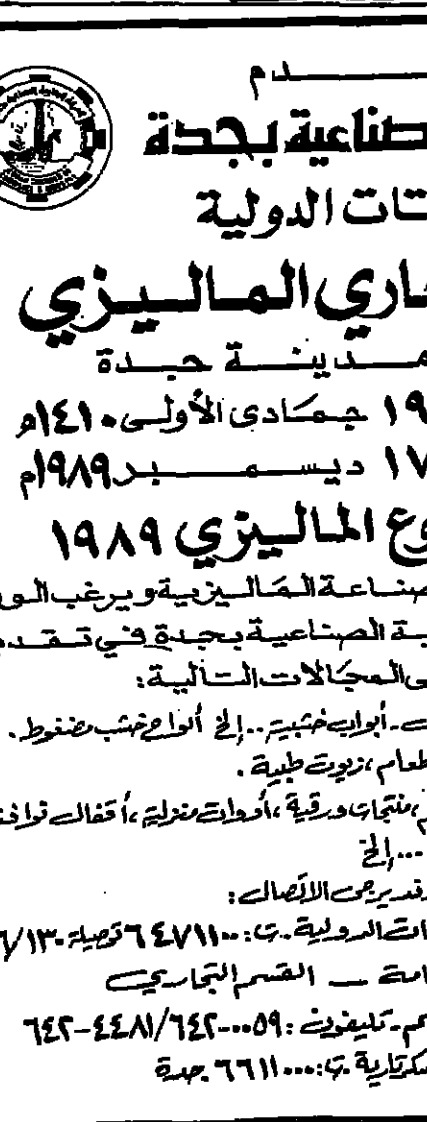 ـدم
صناعية بجدة
ات الدولية
اري الماليزي
مدينة جدة
١٩ جمادى الأولى ١٤١٠هـ
١٧ ديسمبر ١٩٨٩م
وع الماليزي ١٩٨٩
صناعة الماليزية ويرغب الو
ية الصناعية بجدة في تقد
ى المجالات التالية:
أبواب خشبية .. إلخ ألواح خشب مضغوط.
طعام، زيوت طبية.
منتجات ورقية، أدوات منزلية، أقفال نوافذ
... إلخ
يرجى الاتصال:
ات الدولية. ت: ٦٤٧١١٠٠ توصيلة ٦/١٣٠
امة ـ القسم التجاري
تليفون: ٦٤٢-٤٤٨١/٦٤٢-٠٠٥٩
سكرتارية. ت: ٦٦١١٠٠٠ جدة